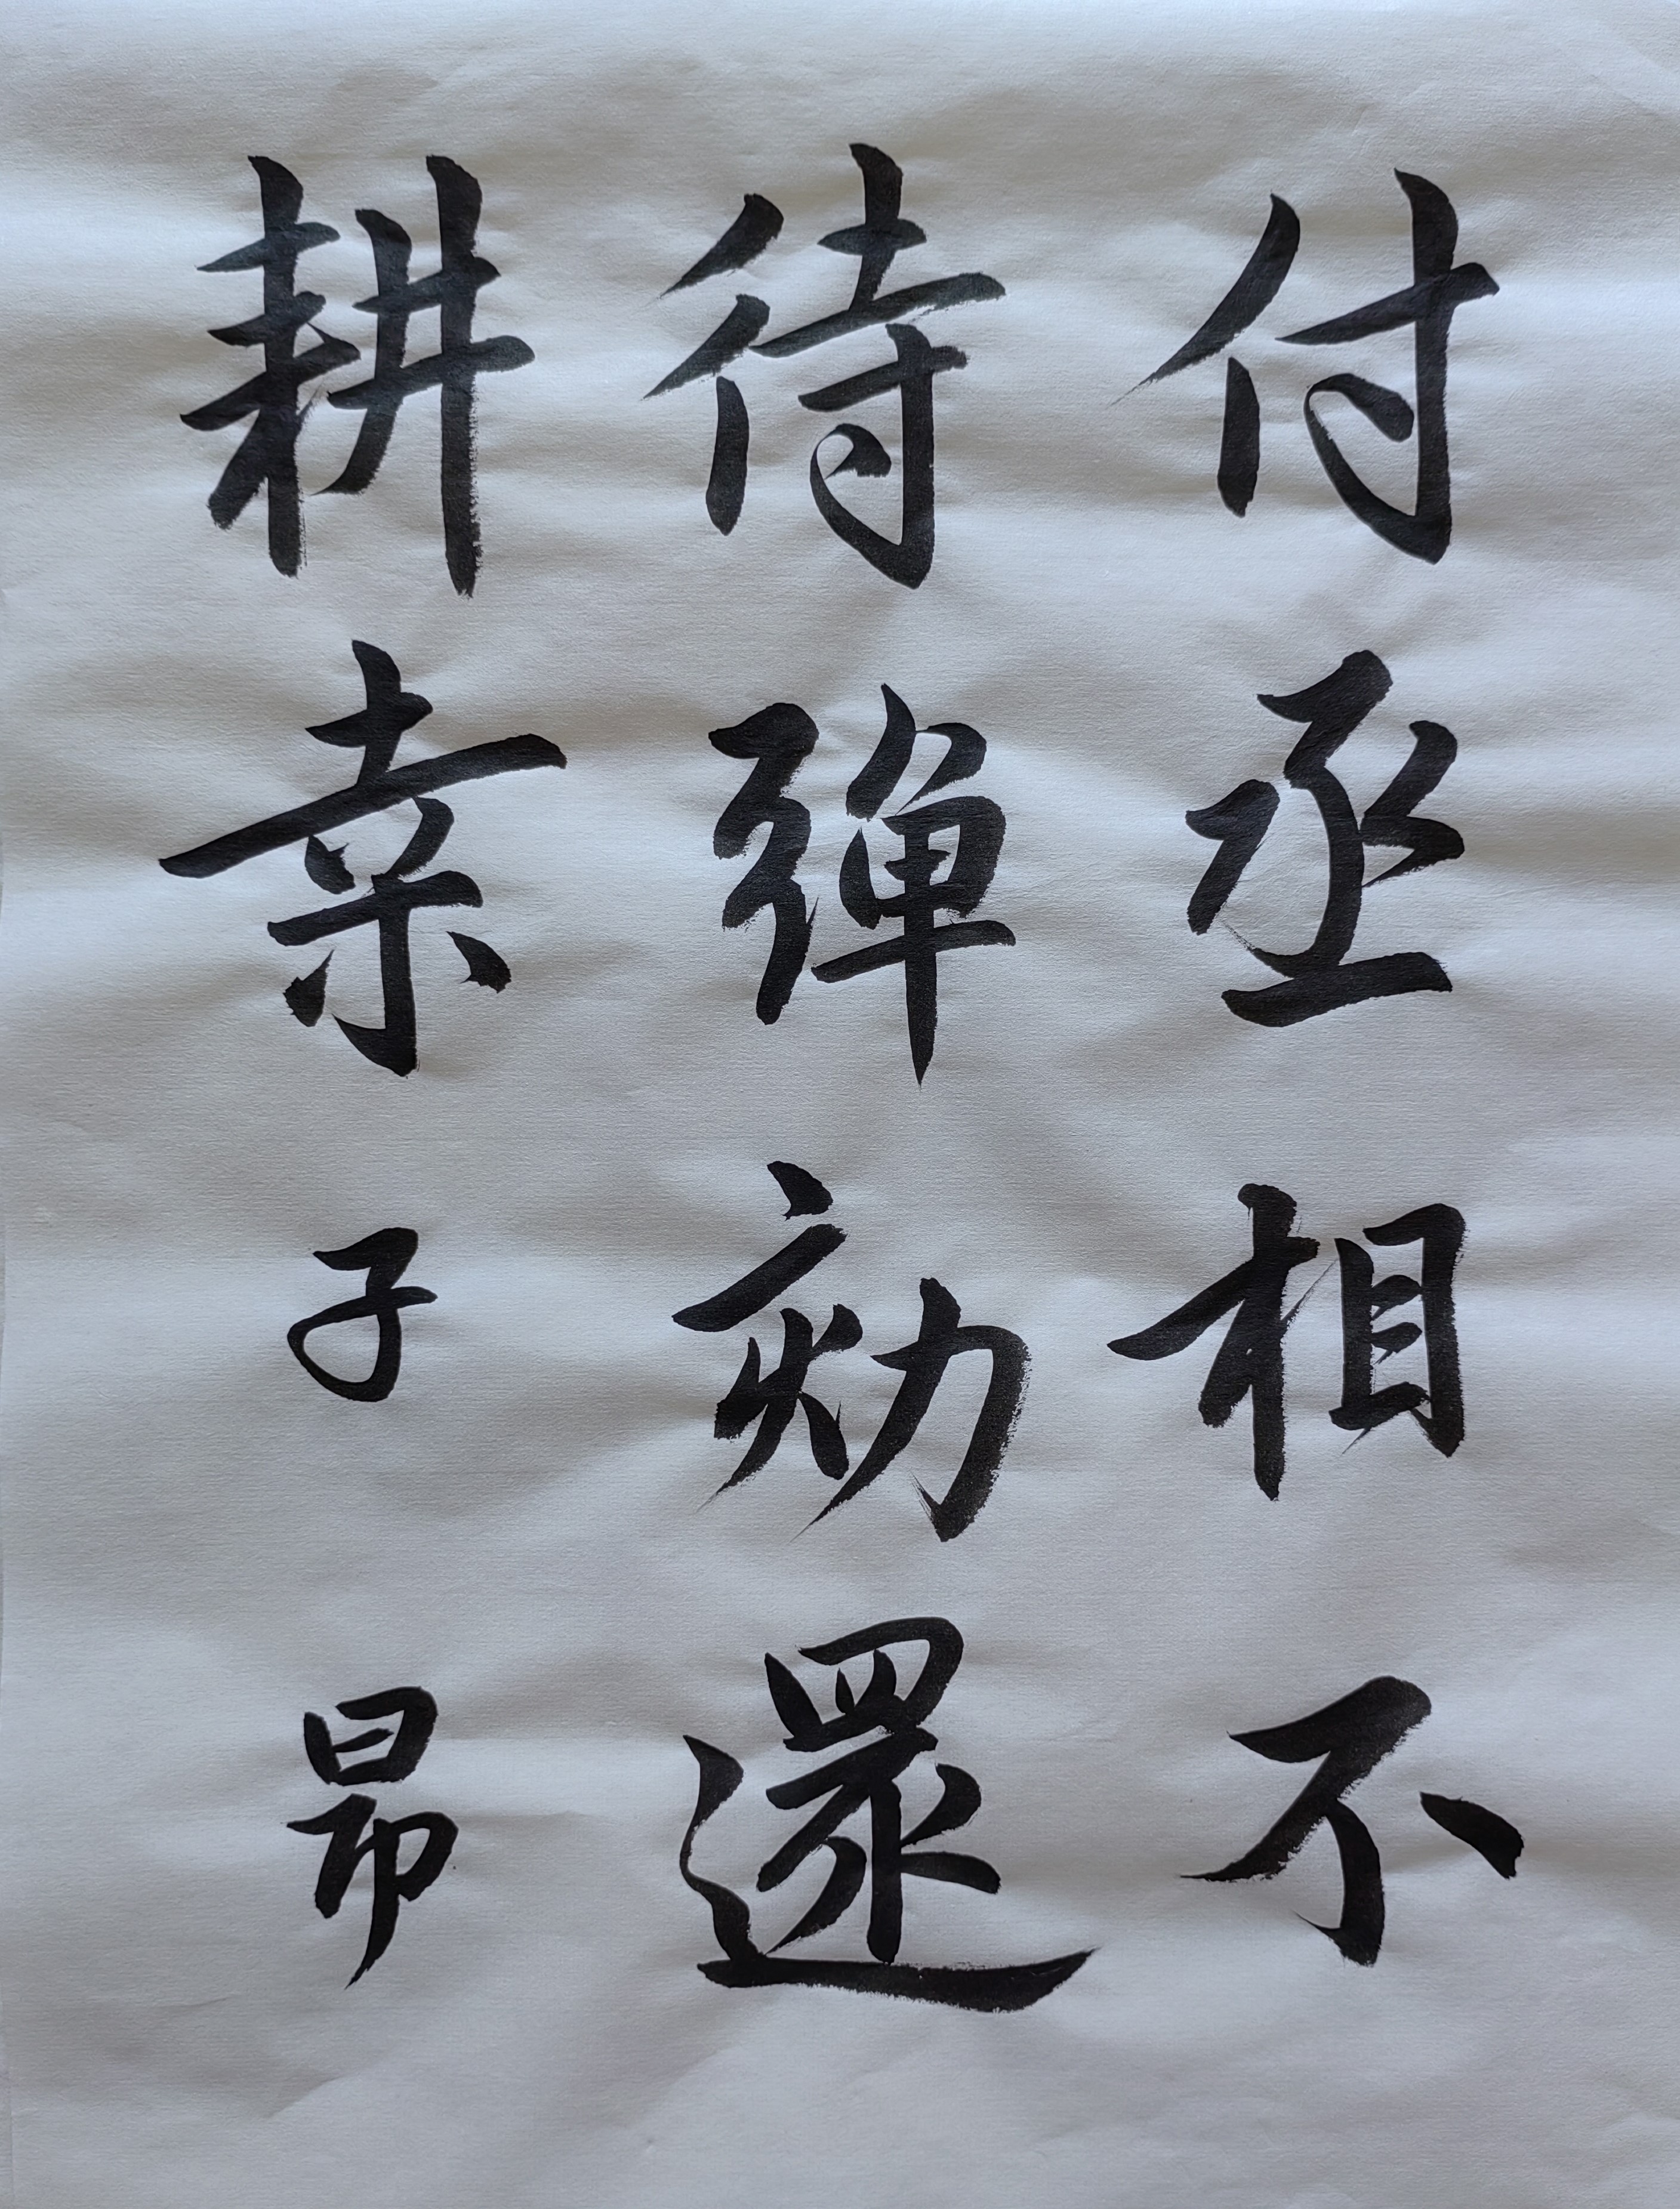 付丞相不
待彈劾還
耕桒子昂